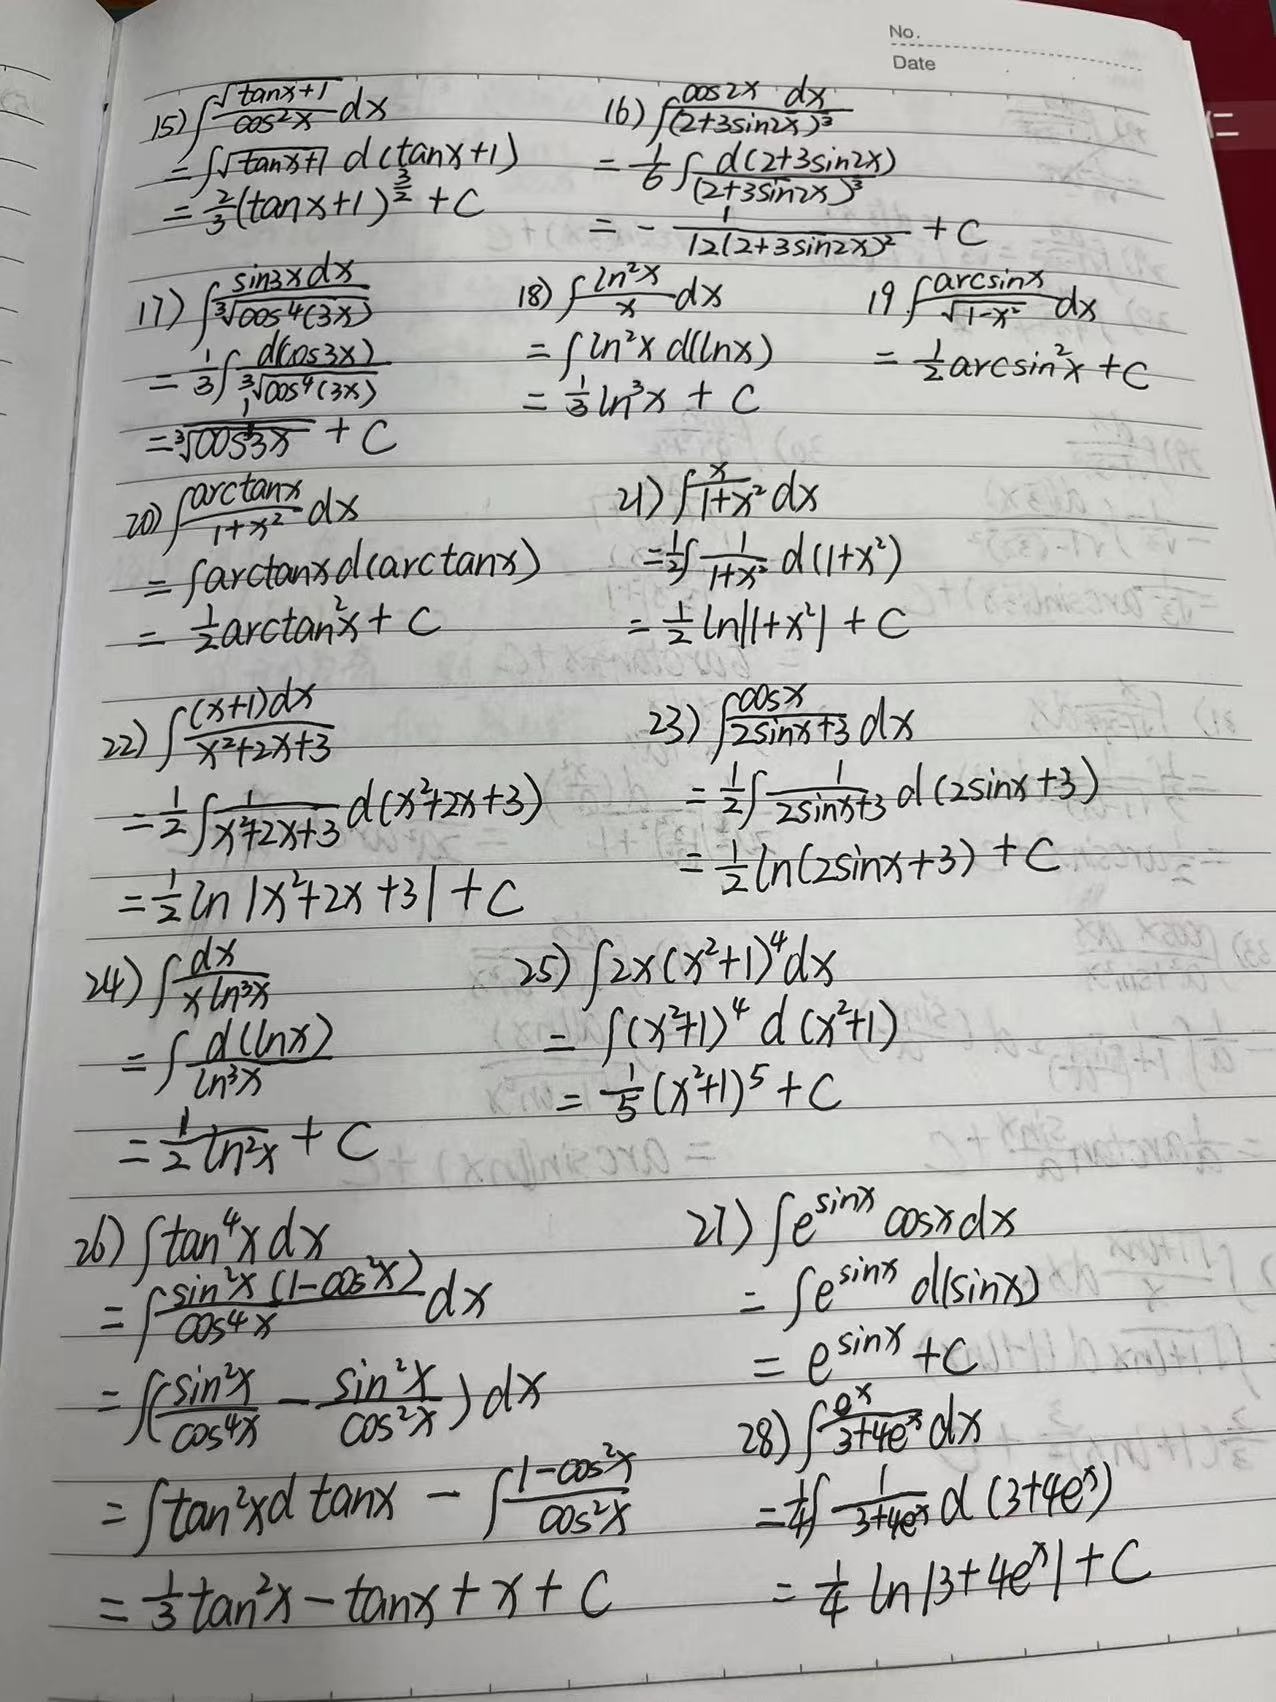 No.
Date
15) ∫ √(tanx+1)/cos²x dx
= ∫√(tanx+1) d(tanx+1)
= 2/3 (tanx+1)^(3/2) + C
16) ∫ cos2x dx/(2+3sin2x)³
= 1/6 ∫ d(2+3sin2x)/(2+3sin2x)³
= - 1/(12(2+3sin2x)²) + C
17) ∫ sin3x dx/³√(cos⁴(3x))
= 1/3 ∫ d(cos3x)/³√(cos⁴(3x))
= 1/³√(cos3x) + C
18) ∫ ln²x/x dx
= ∫ ln²x d(lnx)
= 1/3 ln³x + C
19 ∫ arcsinx/√(1-x²) dx
= 1/2 arcsin²x + C
20) ∫ arctanx/(1+x²) dx
= ∫arctanx d(arctanx)
= 1/2 arctan²x + C
21) ∫ x/(1+x²) dx
= 1/2 ∫ 1/(1+x²) d(1+x²)
= 1/2 ln|1+x²| + C
22) ∫ (x+1)dx/(x²+2x+3)
= 1/2 ∫ 1/(x²+2x+3) d(x²+2x+3)
= 1/2 ln|x²+2x+3| + C
23) ∫ cosx/(2sinx+3) dx
= 1/2 ∫ 1/(2sinx+3) d(2sinx+3)
= 1/2 ln(2sinx+3) + C
24) ∫ dx/(x ln³x)
= ∫ d(lnx)/ln³x
= 1/(2 ln²x) + C
25) ∫2x(x²+1)⁴dx
= ∫(x²+1)⁴ d(x²+1)
= 1/5 (x²+1)⁵ + C
26) ∫tan⁴x dx
= ∫ sin²x(1-cos²x)/cos⁴x dx
= ∫(sin²x/cos⁴x - sin²x/cos²x) dx
= ∫tan²x d tanx - ∫ (1-cos²x)/cos²x
= 1/3 tan²x - tanx + x + C
27) ∫e^(sinx) cosx dx
= ∫e^(sinx) d(sinx)
= e^(sinx) + C
28) ∫ e^x/(3+4e^x) dx
= 1/4 ∫ 1/(3+4e^x) d(3+4e^x)
= 1/4 ln|3+4e^x| + C